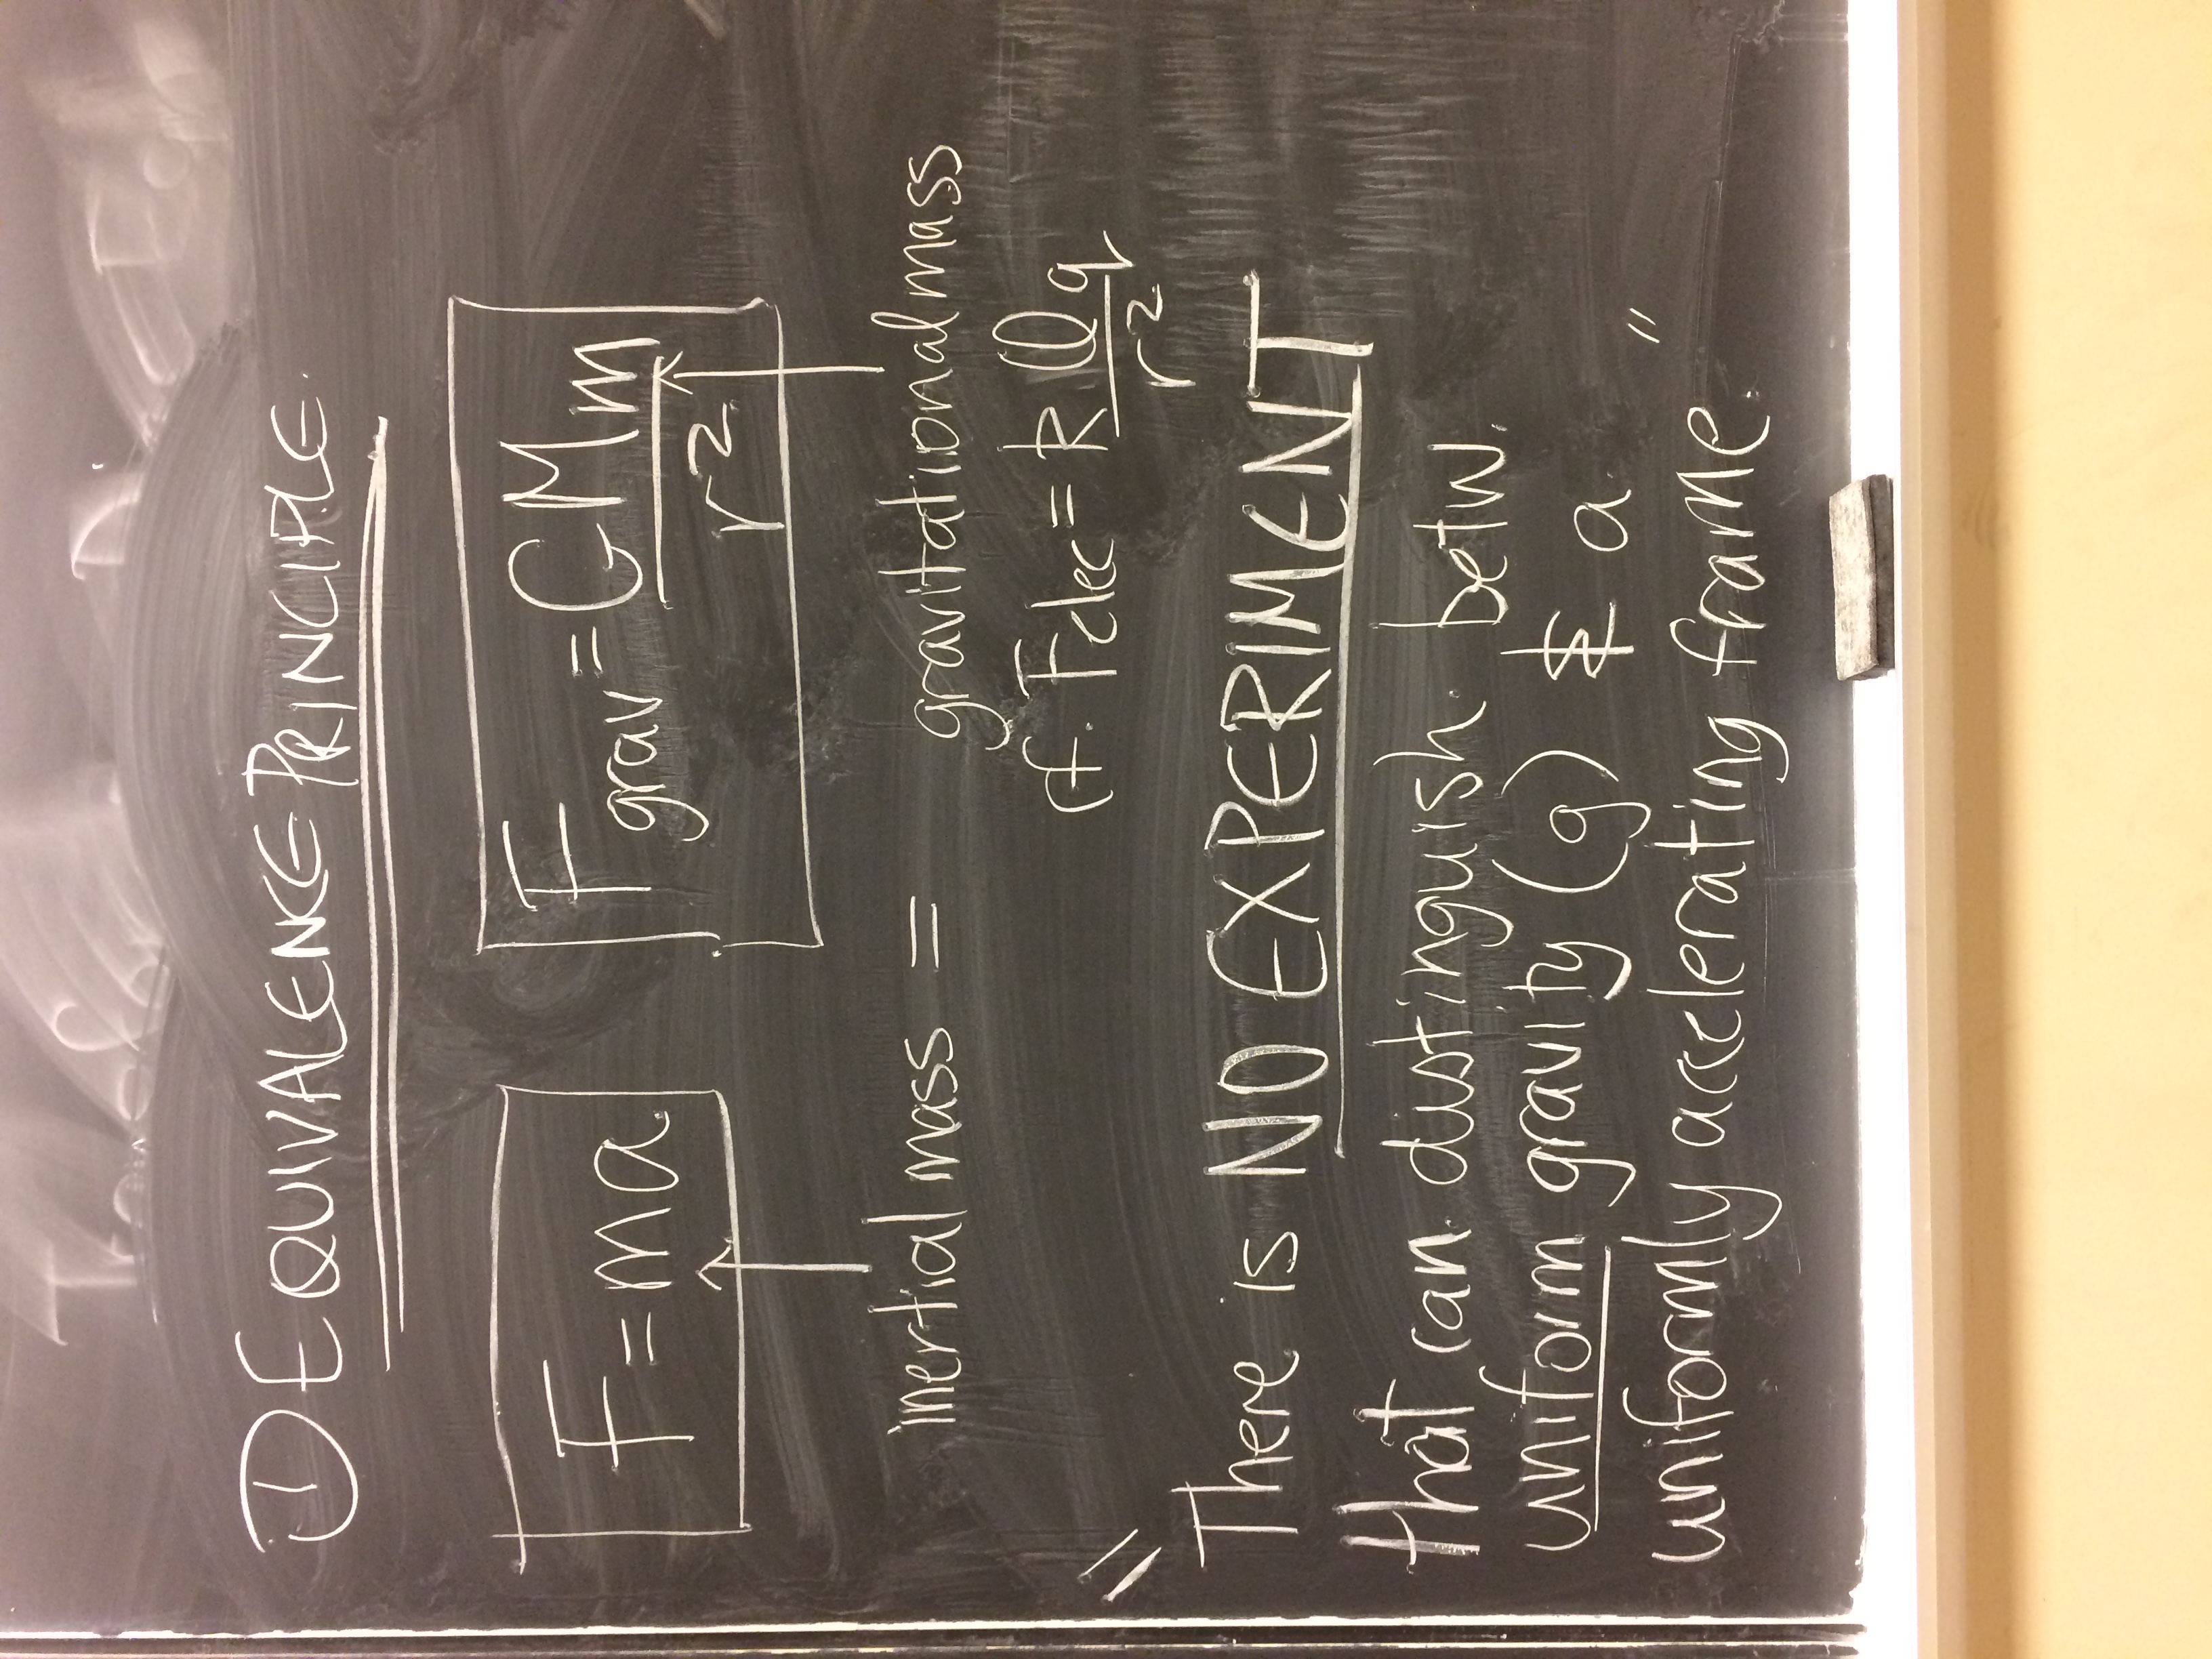 ① EQUIVALENCE PRINCIPLE.
F = ma
F grav = GMm / r²
inertial mass = gravitational mass
cf. Felec = k Qq / r²
"There is NO EXPERIMENT
that can distinguish betw.
uniform gravity (g) & a
uniformly accelerating frame."